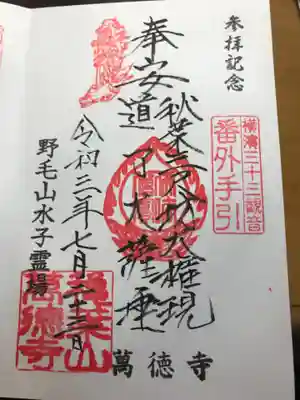 参拝記念
横濱三十三観音
番外手引
奉安
秋葉三尺坊大権現
道了大薩埵
令和三年七月二十三日
野毛山水子霊場
萬德寺
萬徳寺